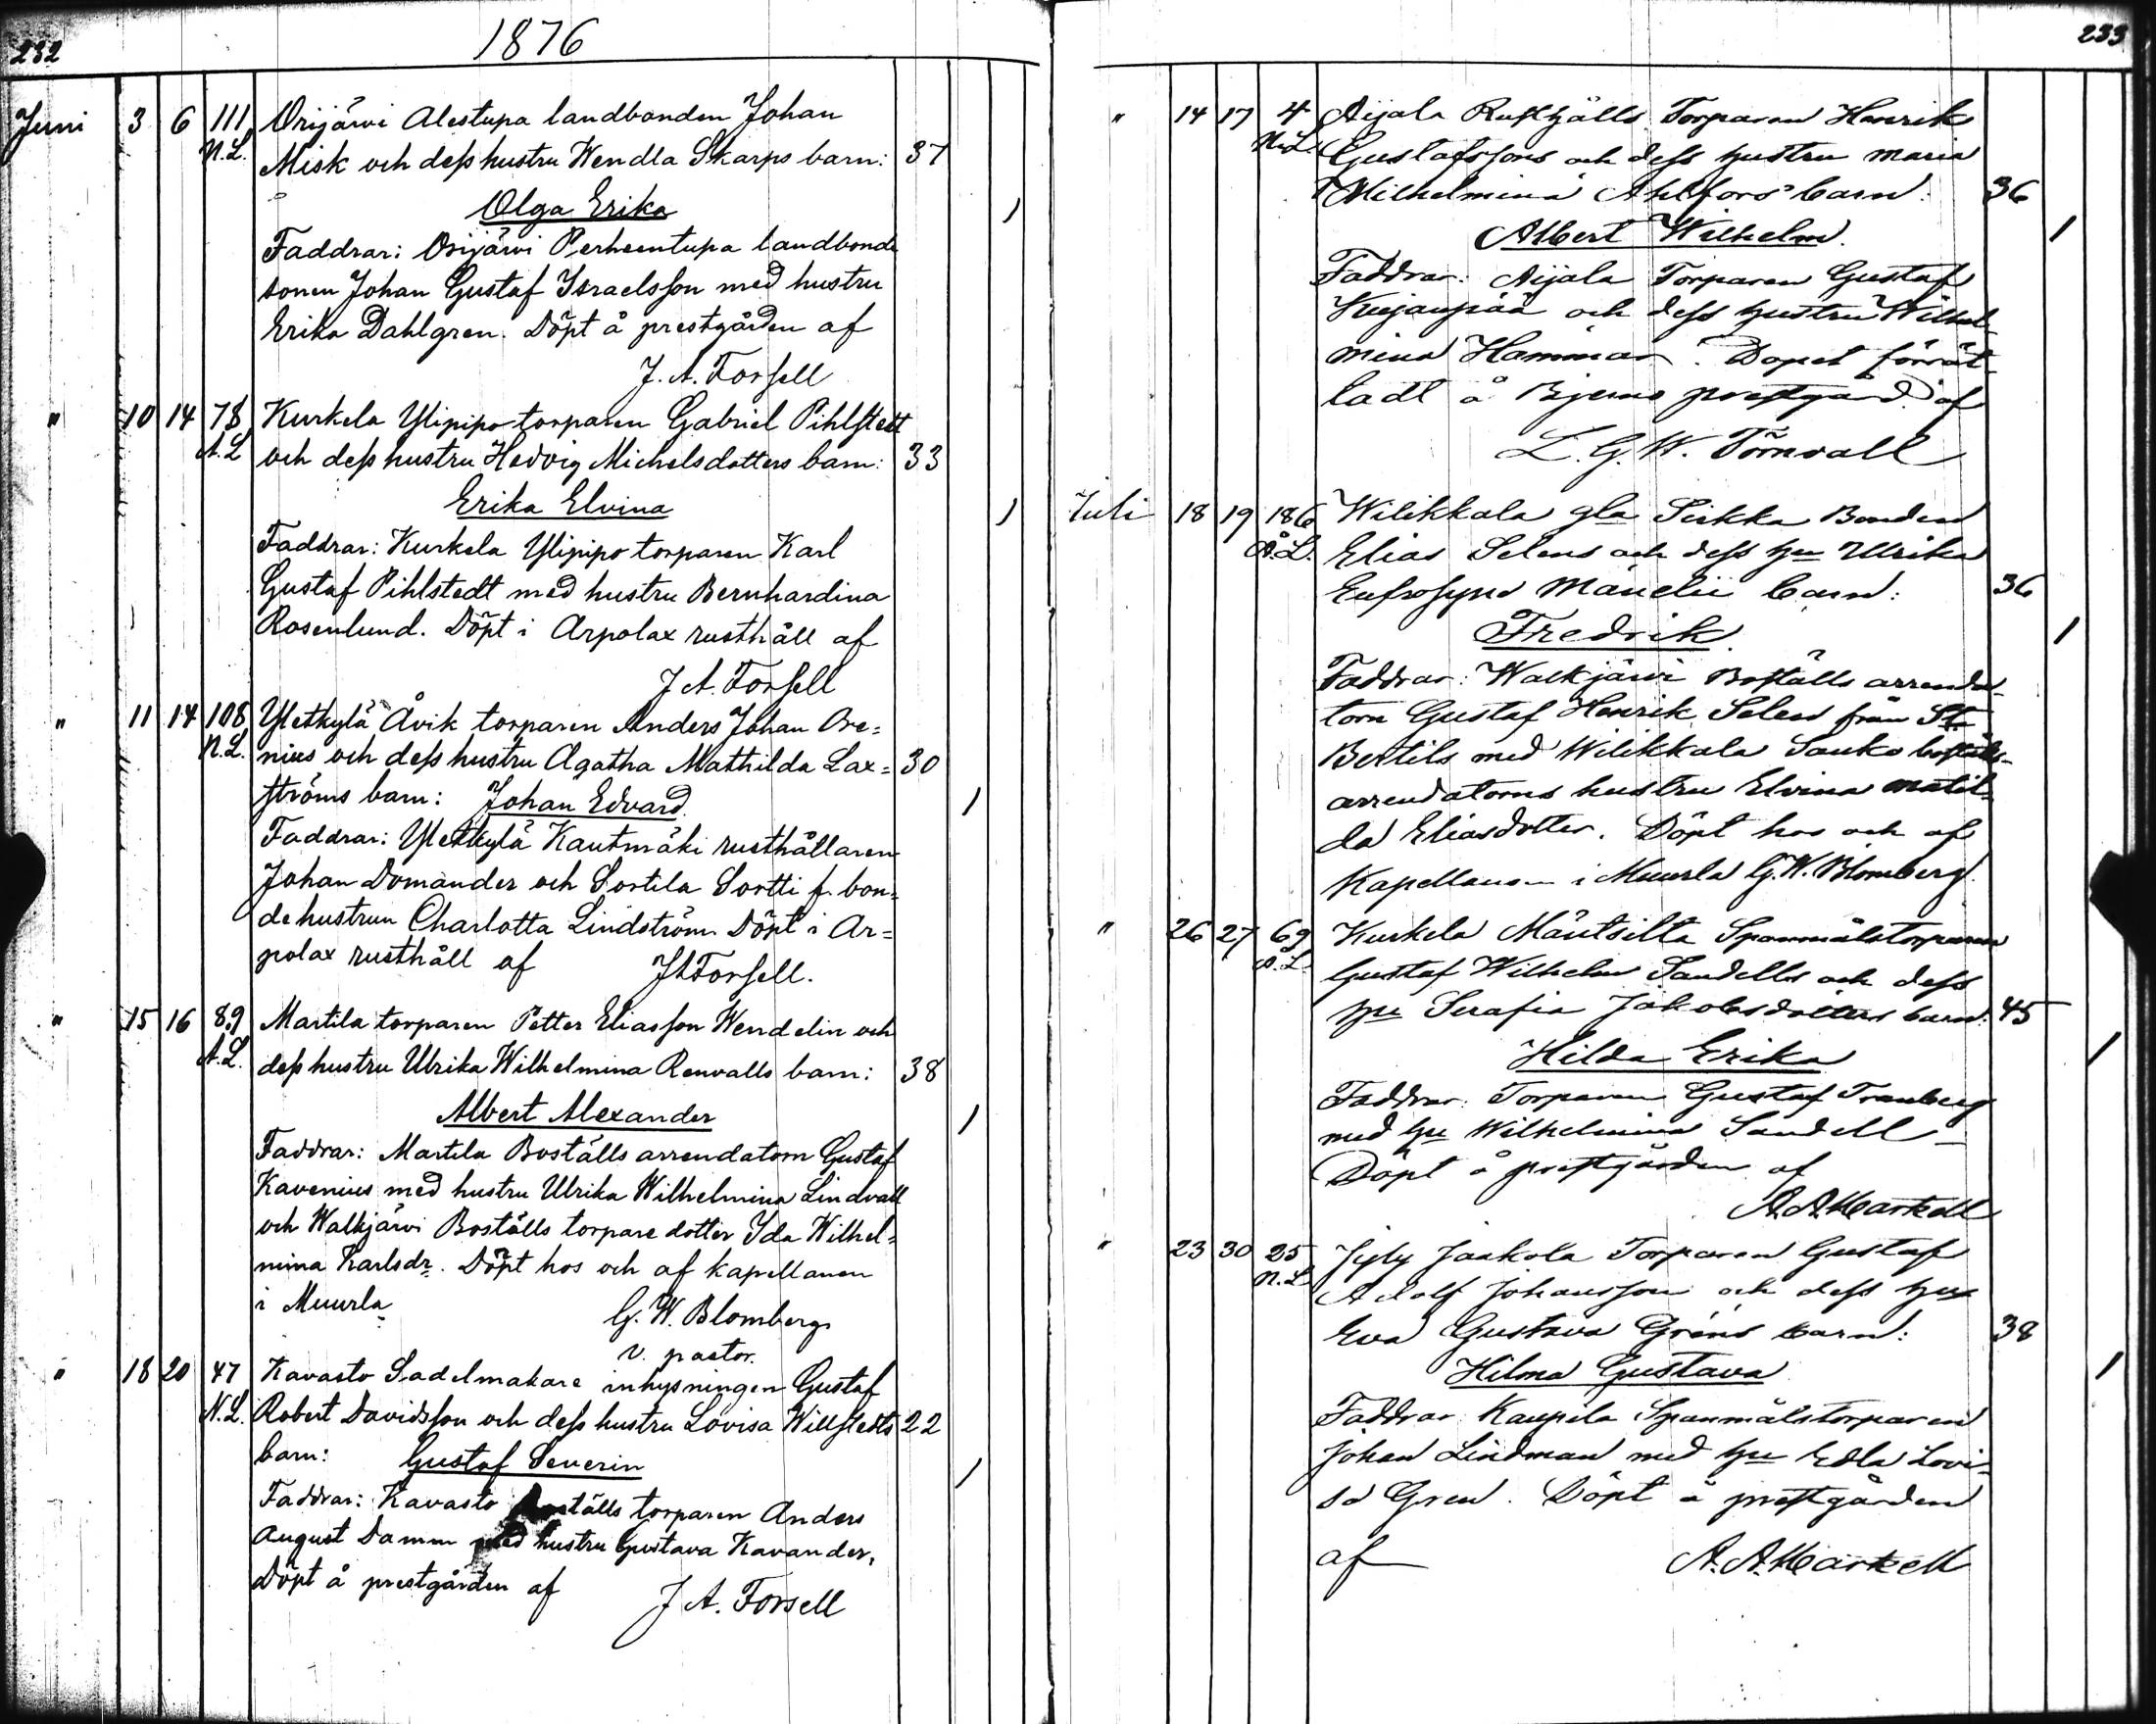 232
1876
Juni 3 6 111 Orijärvi Alestupa landbonden Johan
N.L. Misk och dess hustru Wendla Skarps barn: 37
Olga Erika
Faddrar: Orijärvi Perheentupa landbonde
sonen Johan Gustaf Israelsson med hustru
Erika Dahlgren. Döpt å prestgården af
J. A. Forsell
" 10 14 78 Kurkela Ylipipo torparen Gabriel Pihlstedt
A.L och dess hustru Hedvig Michelsdotters barn: 33
Erika Elvina
Faddrar: Kurkela Ylipipo torparen Karl
Gustaf Pihlstedt med hustru Bernhardina
Rosenlund. Döpt i Arpolax rusthåll af
J A. Forsell
" 11 14 108 Yletkylä Åvik torparen Anders Johan Ore=
N.L. nius och dess hustru Agatha Mathilda Lax= 30
ströms barn: Johan Edvard.
Faddrar: Yletkylä Kautmäki rusthållaren
Johan Domander och Sortila Sortti f. bon=
de hustrun Charlotta Lindström. Döpt i Ar=
polax rusthåll af J A Forsell.
" 15 16 89 Martila torparen Petter Eliasson Wendelin och
A.L. dess hustru Ulrika Wilhelmina Renvalls barn: 38
Albert Alexander
Faddrar: Martila Boställs arrendatorn Gustaf
Kavenius med hustru Ulrika Wilhelmina Lindvall
och Walkjärvi Boställs torpare dotter Ida Wilhel=
mina Karlsdr. Döpt hos och af kapellanen
i Muurla G. W. Blomberg
v. pastor.
" 18 20 47 Kavasto Sadelmakare inhysningen Gustaf
N.L. Robert Davidsson och dess hustru Lovisa Willstedts 22
barn: Gustaf Severin
Faddrar: Kavasto Boställs torparen Anders
August Damm med hustru Gustava Kavander,
Döpt å prestgården af J A. Forsell
233
" 14 17 4 Aijala Rusthålls Torparen Henrik
N.L. Gustafssons och dess hustru Maria
Wilhelmina Ahlfors barn: 36
Albert Wilhelm.
Faddrar: Aijala Torparen Gustaf
Kujanpää och dess hustru Wilhel-
mina Hammar. Dopet förrät-
tadt å Bjerno prestgård af
L. G. W. Törnvall
Juli 18 19 186 Wilikkala gla Sirkka Bonden
A.L. Elias Selens och dess hu Ulrika
Eufrosyne Manelii barn: 36
Fredrik.
Faddrar: Walkjärvi Boställs arrenda-
torn Gustaf Henrik Selen från St
Bertils med Wilikkala Sauko boställs-
arrendatorns hustru Elvina Matil-
da Eliasdotter. Döpt hos och af
Kapellanen i Muurla G. W. Blomberg.
" 26 27 69 Kurkela Mäntsilta Spannmålstorparen
A.L. Gustaf Wilhelm Sandells och dess
hu Serafia Jakobsdotters barn: 45
Hilda Erika
Faddrar: Torparen Gustaf Tranberg
med hu Wilhelmina Sandell
Döpt å prestgården af
A. A. Markell
" 23 30 25 Jaakola Torparen Gustaf
N.L. Adolf Johansson och dess hu
Eva Gustava Gröns barn: 38
Hilma Gustava
Faddrar: Kaupila Spannmålstorparen
Johan Lindman med hu Edla Lovi-
sa Gren. Döpt å prestgården
af A. A. Markell